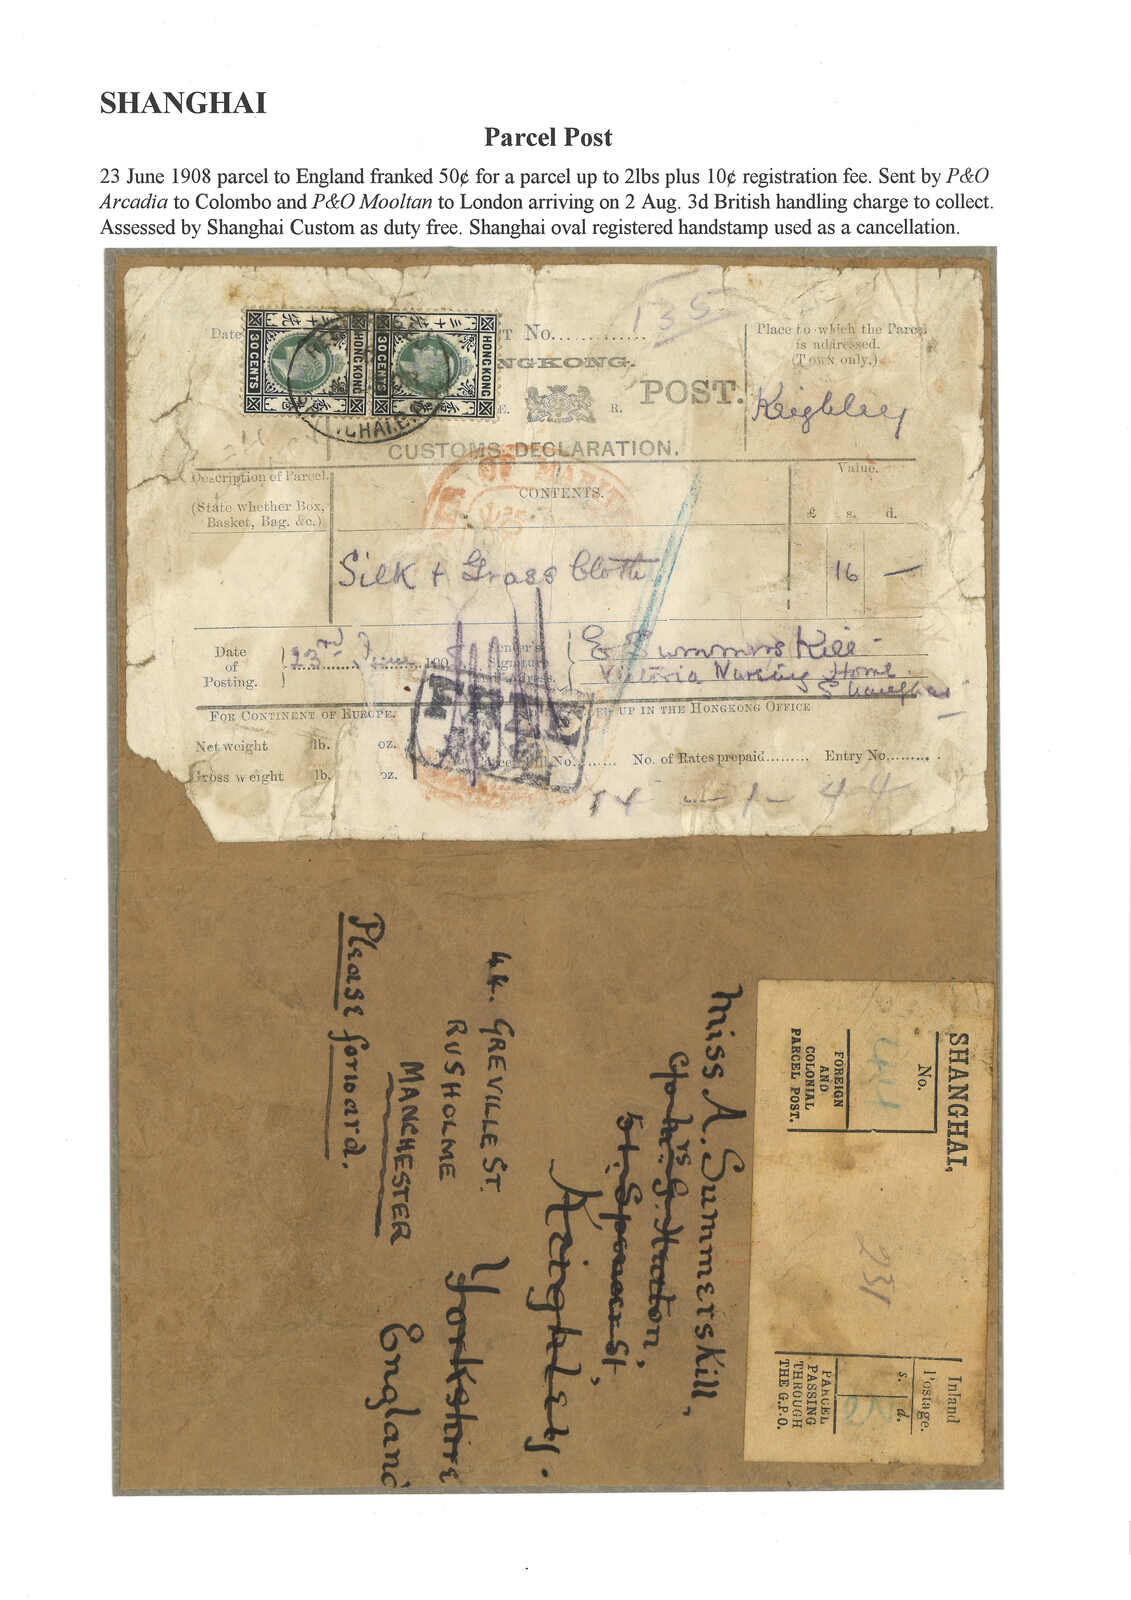 SHANGHAI
Parcel Post
23 June 1908 parcel to England franked 50¢ for a parcel up to 2lbs plus 10¢ registration fee. Sent by P&O
Arcadia to Colombo and P&O Mooltan to London arriving on 2 Aug. 3d British handling charge to collect.
Assessed by Shanghai Custom as duty free. Shanghai oval registered handstamp used as a cancellation.
135
Date
T No.
NGKONG.
30 CENTS
HONGKONG
30 CENTS
HONGKONG
R.
POST.
Place to which the Parcel
is addressed.
(Town only.)
Keighley
CUSTOMS DECLARATION.
Description of Parcel.
(State whether Box,
Basket, Bag. &c.)
CONTENTS.
Value.
£ s. d.
Silk + Grass Cloth
16 —
Date
of
Posting.
23rd June 190
Signature
E Summerskill
Victoria Nursing Home
Shanghai
FOR CONTINENT OF EUROPE.
ED UP IN THE HONGKONG OFFICE
Net weight lb. oz.
Gross weight lb. oz.
No. No. of Rates prepaid Entry No.
14 — 1 — 44
SHANGHAI,
No.
44
FOREIGN
AND
COLONIAL
PARCEL POST.
231
Inland
Postage.
s. d.
PARCEL
PASSING
THROUGH
THE G.P.O.
Miss A. Summerskill,
c/o Mrs G. Hutton,
51. Spencer St,
Keighley.
Yorkshire
England
44. GREVILLE ST.
RUSHOLME
MANCHESTER
Please forward.